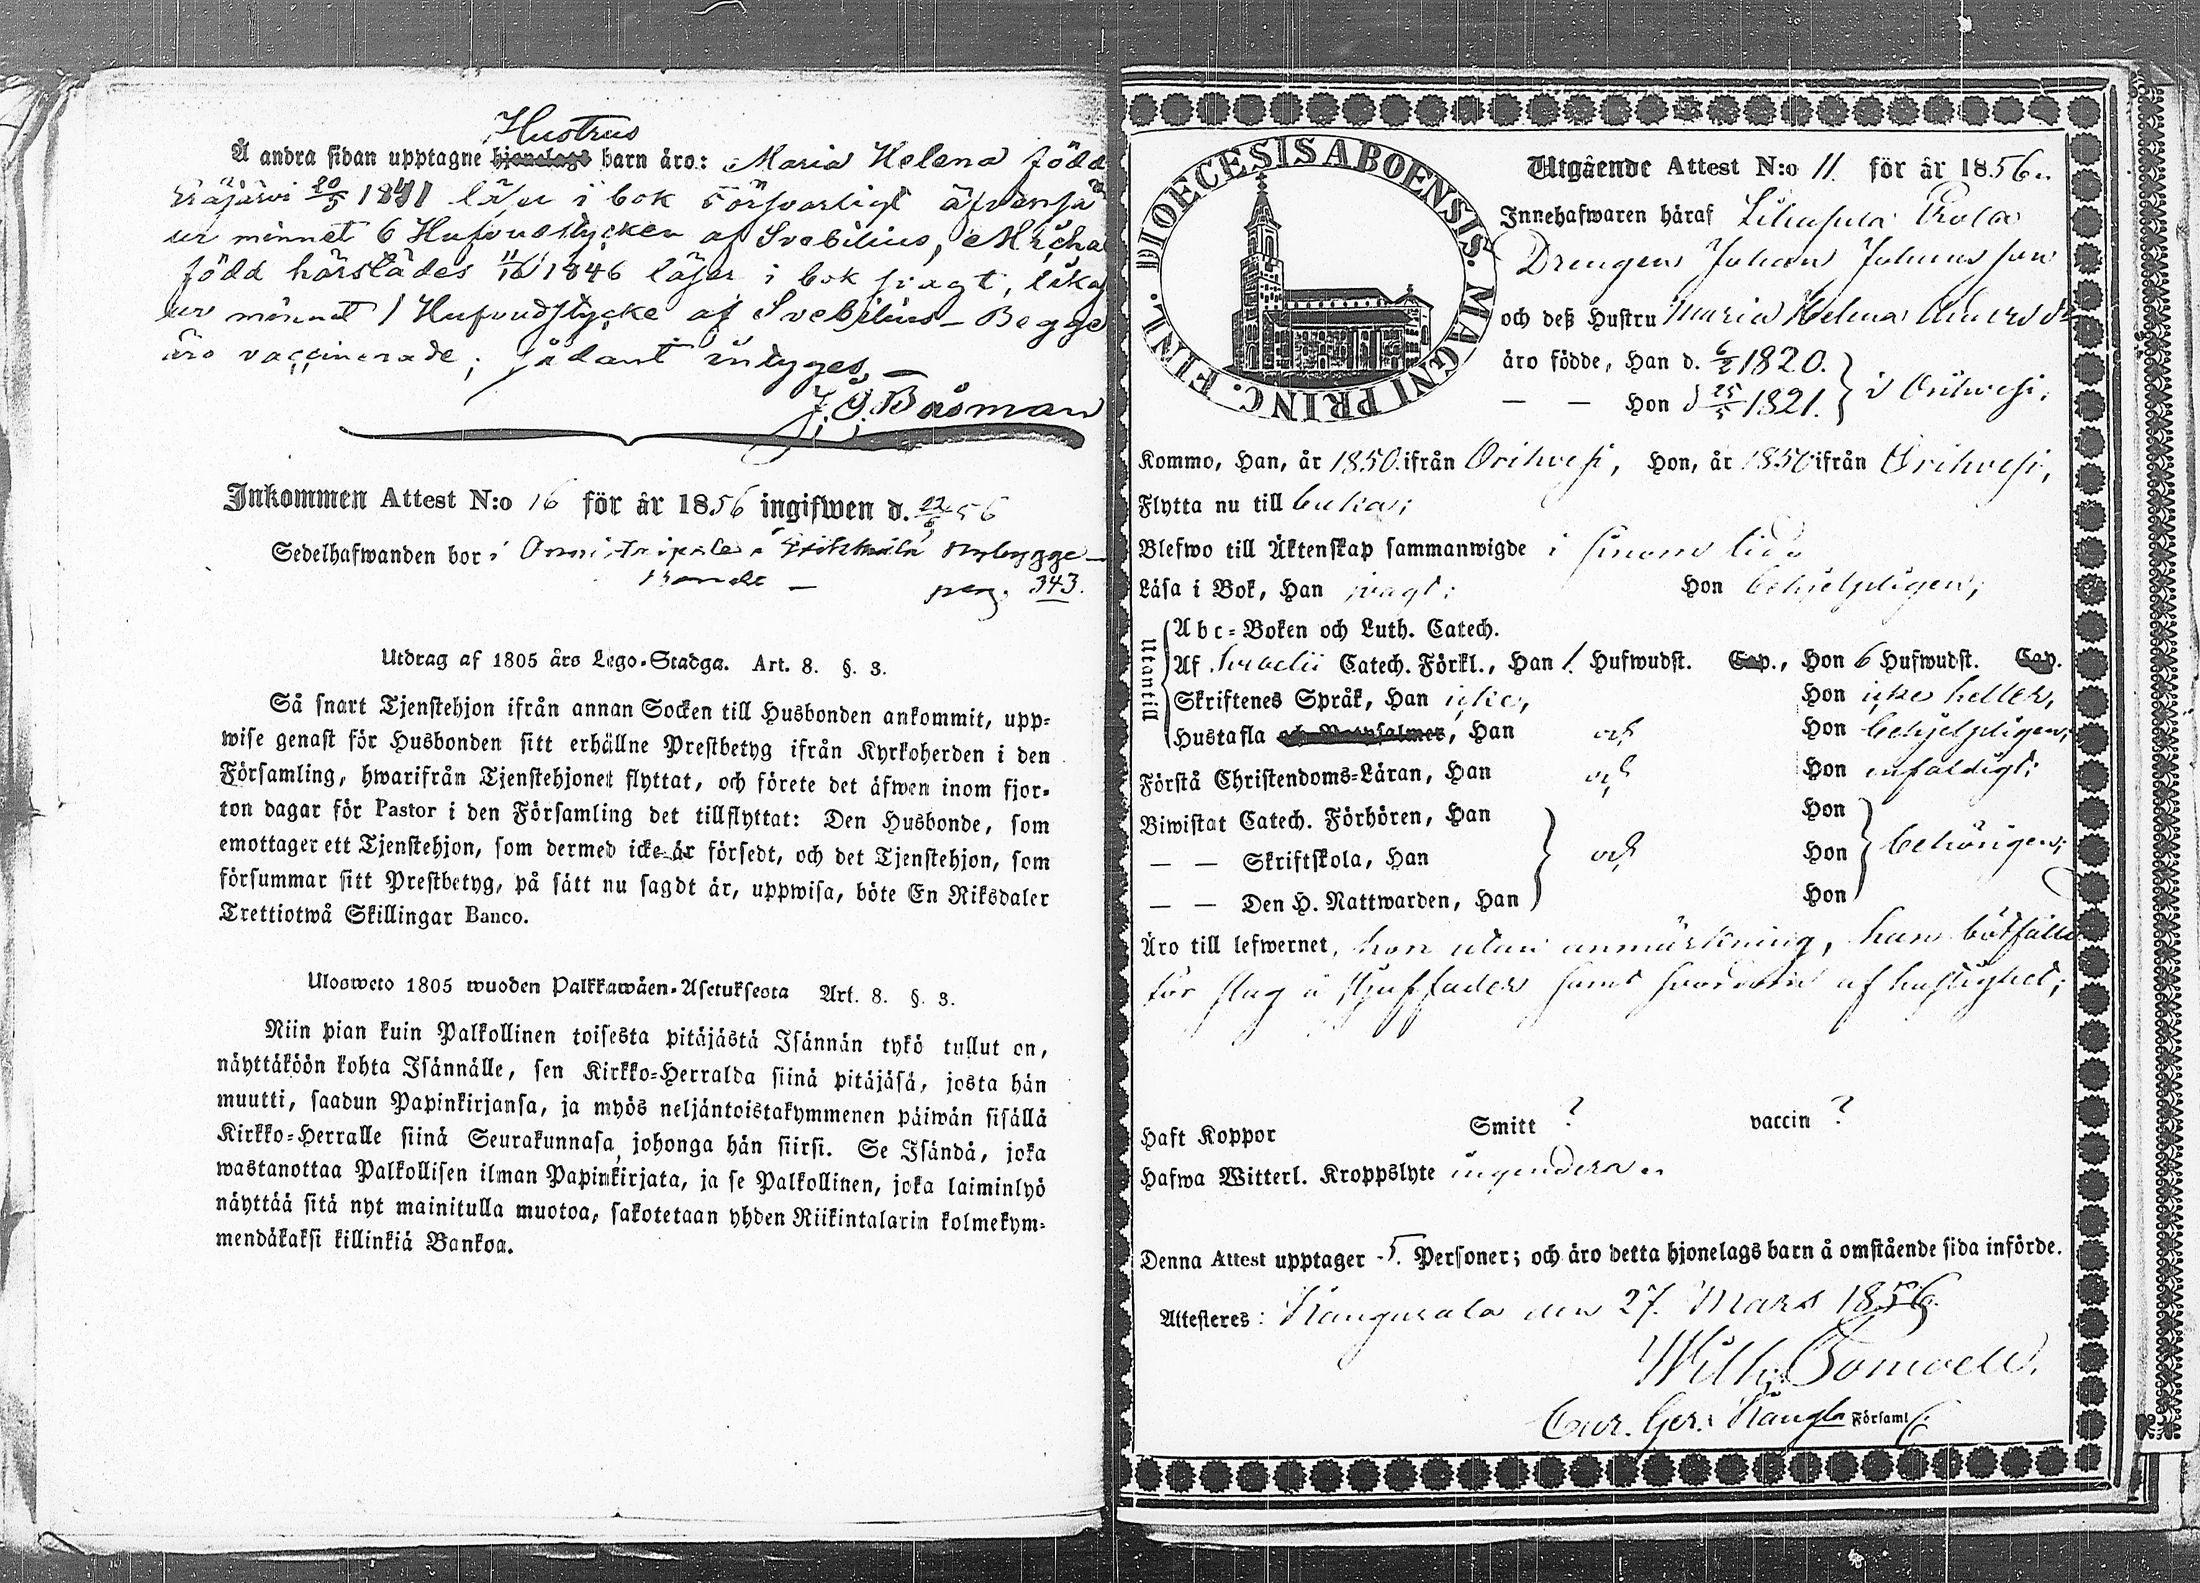 Hustrus
Å andra sidan upptagne hjonelags barn äro: Maria Helena född
Eräjärvi 20/5 1841 läser i bok försvarligt äfvenså
ur minnet 6 Hufvudstycken af Svebilius, Micha
född härstädes 11/10 1846 läser i bok svagt, lika
ur minnet 1 Hufvudstycke af Svebilius – Begge
äro vaccinerade; sådant intygges –
J. G. Båsman
Inkommen Attest N:o 16 för år 1856 ingifwen d. 22/6 56
Sedelhafwanden bor i nybygge
pag. 343.
Utdrag af 1805 års Lego-Stadga. Art. 8. §. 3.
Så snart Tjenstehjon ifrån annan Socken till Husbonden ankommit, upp-
wise genast för Husbonden sitt erhållne Prestbetyg ifrån Kyrkoherden i den
Församling, hwarifrån Tjenstehjonet flyttat, och förete det äfwen inom fjor-
ton dagar för Pastor i den Församling det tillflyttat: Den Husbonde, som
emottager ett Tjenstehjon, som dermed icke är försedt, och det Tjenstehjon, som
försummar sitt Prestbetyg, på sätt nu sagdt är, uppwisa, böte En Riksdaler
Trettiotwå Skillingar Banco.
Ulosweto 1805 wuoden Palkkawäen-Asetuksesta Art. 8. §. 3.
Niin pian kuin Palkollinen toisesta pitäjästä Isännän tykö tullut on,
näyttäköön kohta Isännälle, sen Kirkko-Herralda siinä pitäjäsä, josta hän
muutti, saadun Papinkirjansa, ja myös neljäntoistakymmenen päiwän sisällä
Kirkko-Herralle siinä Seurakunnasa, johonga hän siirsi. Se Isändä, joka
wastanottaa Palkollisen ilman Papinkirjata, ja se Palkollinen, joka laiminlyö
näyttää sitä nyt mainitulla muotoa, sakotetaan yhden Riikintalarin kolmekym-
mendäkaksi killinkiä Bankoa.
DIOECESIS ABOENSIS. MAGNI PRINC. FINL.
Utgående Attest N:o 11 för år 1856.
Innehafwaren häraf Liuksiala
Drengen Johan Johansson
och deß Hustru Maria Helena Andersdr
äro födde, Han d. 6/2 1820.
— — Hon d 25/5 1821. i Orihvesi;
Kommo, Han, år 1850 ifrån Orihvesi, Hon, år 1850 ifrån Orihvesi,
Flytta nu till
Blefwo till Äktenskap sammanwigde i sinom tid
Läsa i Bok, Han svagt; Hon behjelpligen;
Utantill
Abc-Boken och Luth. Catech.
Af Svebelii Catech. Förkl., Han 1. Hufwudst. Cap., Hon 6 Hufwudst. Cap.
Skriftenes Språk, Han icke, Hon icke heller,
Hustafla och Botpsalmer, Han och Hon behjelpligen;
Förstå Christendoms-Läran, Han och Hon enfaldigt;
Biwistat Catech. Förhören, Han Hon
— — Skriftskola, Han och Hon behörigen;
— — Den H. Nattwarden, Han Hon
Äro till lefwernet, hon utan anmärkning, han bötfälld
för slag å styffader samt svordom af hastighet;
Haft Koppor Smitt ? vaccin ?
Hafwa Witterl. Kroppslyte ingendera
Denna Attest upptager 5. Personer; och äro detta hjonelags barn å omstående sida införde.
Attesteres: Kangasala den 27. Mars 1856.
Wilh.
Cur. Ger. i Kangla Församl